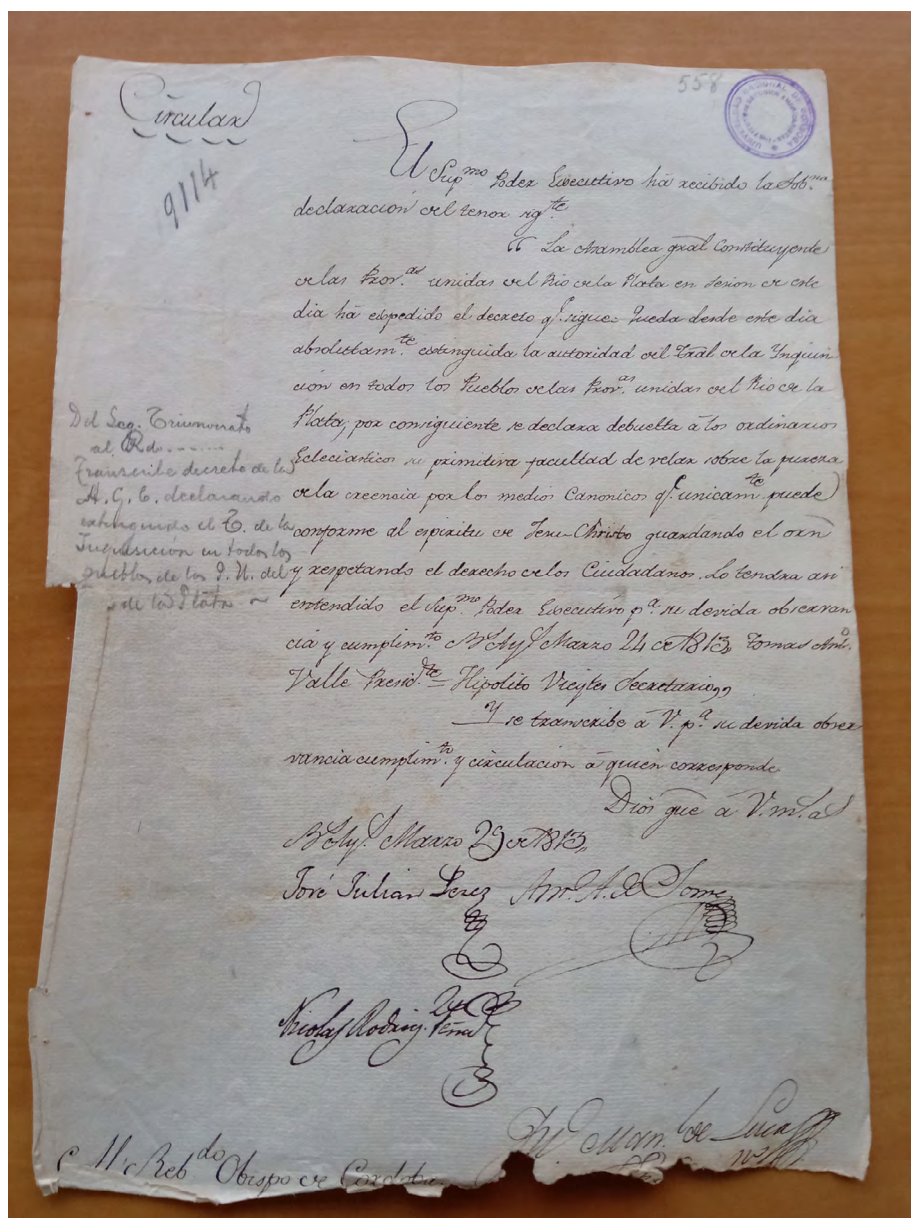 Circular
558
UNIVERSIDAD NACIONAL DE CORDOBA
9114
El Sup.mo Poder Executivo há recibido la Sob.na
declaracion del tenor sig.te
“ La Asamblea gral Constituyente
de las Prov.as unidas del Rio de la Plata en sesion de este
dia há expedido el decreto q.e sigue= Queda desde este dia
absolutam.te extinguida la autoridad del Tral de la Inquisi
cion en todos los Pueblos de las Prov.as unidas del Rio de la
Plata, por consiguiente se declara debuelta á los ordinarios
Ecleciasticos su primitiva facultad de velar sobre la pureza
de la creencia por los medios Canonicos q.e unicam.te puede
conforme al espiritu de Jesu-Christo guardando el orñ
y respetando el derecho de los Ciudadanos. Lo tendra asi
entendido el Sup.mo Poder Executivo p.a su devida observan
cia y cumplim.to B.s Ay.s Marzo 24 de 1813,, Tomas Ant.o
Valle Presid.te = Hipolito Vieytes Secretario,,
Y se transcribe á V. p.a su devida obser
vancia cumplim.to y circulacion á quien corresponde
Dios gue á V. m.s a.s
B.s Ay.s Marzo 29 de 1813,,
José Julian Perez
Nicolas Rodrig.z Peña
Man.l de Luca
Rebdo Obispo de Cordoba
Del Seg. Triunvirato
al Rdo.
Transcribe decreto de la
A. G. C. declarando
extinguido el T. de la
Inquisición en todos los
pueblos de las P. U. del
de la Plata